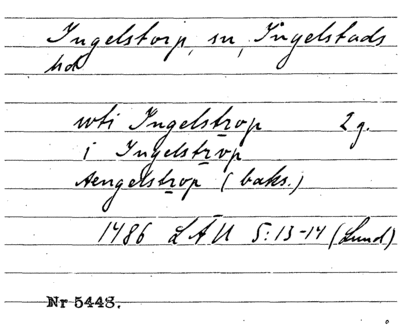 Ingelstorp, sn, Ingelstads
hd
wti Ingelstrop 2 g.
i Ingelstrop
Aengelstrop (baks.)
1486 LÄU 5:13-14 (Lund)
Nr 5448.